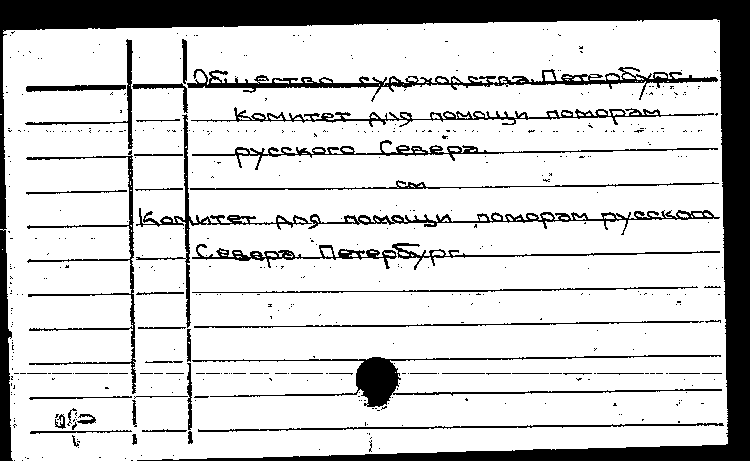 Общество судоходства. Петербург.
Комитет для помощи поморам
русского Севера.
см
Комитет для помощи поморам русского
Севера. Петербург.